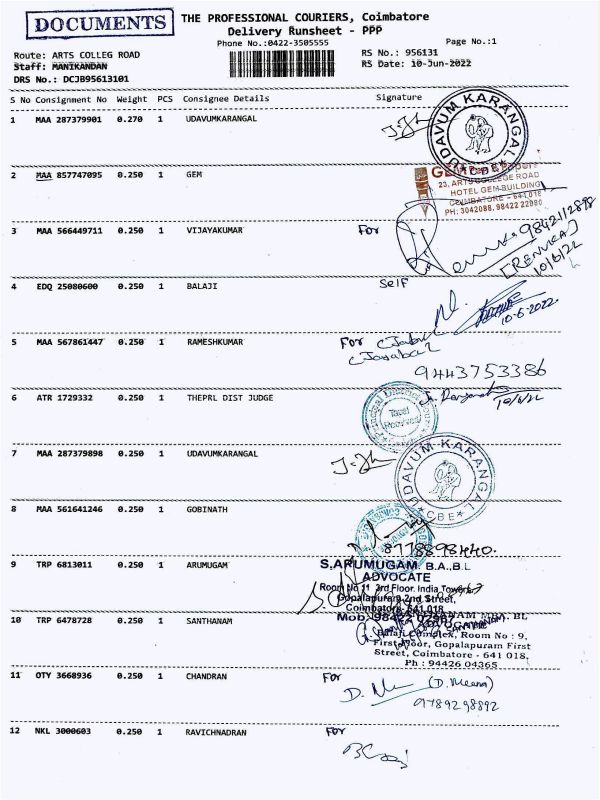 DOCUMENTS
THE PROFESSIONAL COURIERS, Coimbatore
Delivery Runsheet - PPP
Phone No.:0422-3505555
Page No.:1
Route: ARTS COLLEG ROAD
RS No.: 956131
Staff: MANIKANDAN
RS Date: 10-Jun-2022
DRS No.: DCJB95613101
S No Consignment No Weight PCS Consignee Details Signature
1 MAA 287379901 0.270 1 UDAVUMKARANGAL
UDAVUM KARANGAL
CBE
2 MAA 857747095 0.250 1 GEM
23, ARTS COLLEGE ROAD
HOTEL GEM BUILDING
COIMBATORE - 641 018
PH: 3042088, 98422 22980
3 MAA 566449711 0.250 1 VIJAYAKUMAR For
9842112898
[RENUKA]
10/6/22
4 EDQ 25080600 0.250 1 BALAJI Self
10-6-2022
5 MAA 567861447 0.250 1 RAMESHKUMAR For
9443753386
6 ATR 1729332 0.250 1 THEPRL DIST JUDGE
10/6/22
7 MAA 287379898 0.250 1 UDAVUMKARANGAL
UDAVUM KARANGAL
CBE
8 MAA 561641246 0.250 1 GOBINATH
8778898440.
9 TRP 6813011 0.250 1 ARUMUGAM
S,ARUMUGAM. B.A.B.L
ADVOCATE
Room No 11 3rd Floor. India Towers
Gopalapuram 2nd Street,
Coimbatore-641 018
10 TRP 6478728 0.250 1 SANTHANAM
ADVOCATE
Balaji Complex, Room No : 9,
First Floor, Gopalapuram First
Street, Coimbatore - 641 018.
Ph : 94426 04365
11 OTY 3668936 0.250 1 CHANDRAN For
(D. Meena)
9789298892
12 NKL 3000603 0.250 1 RAVICHNADRAN For